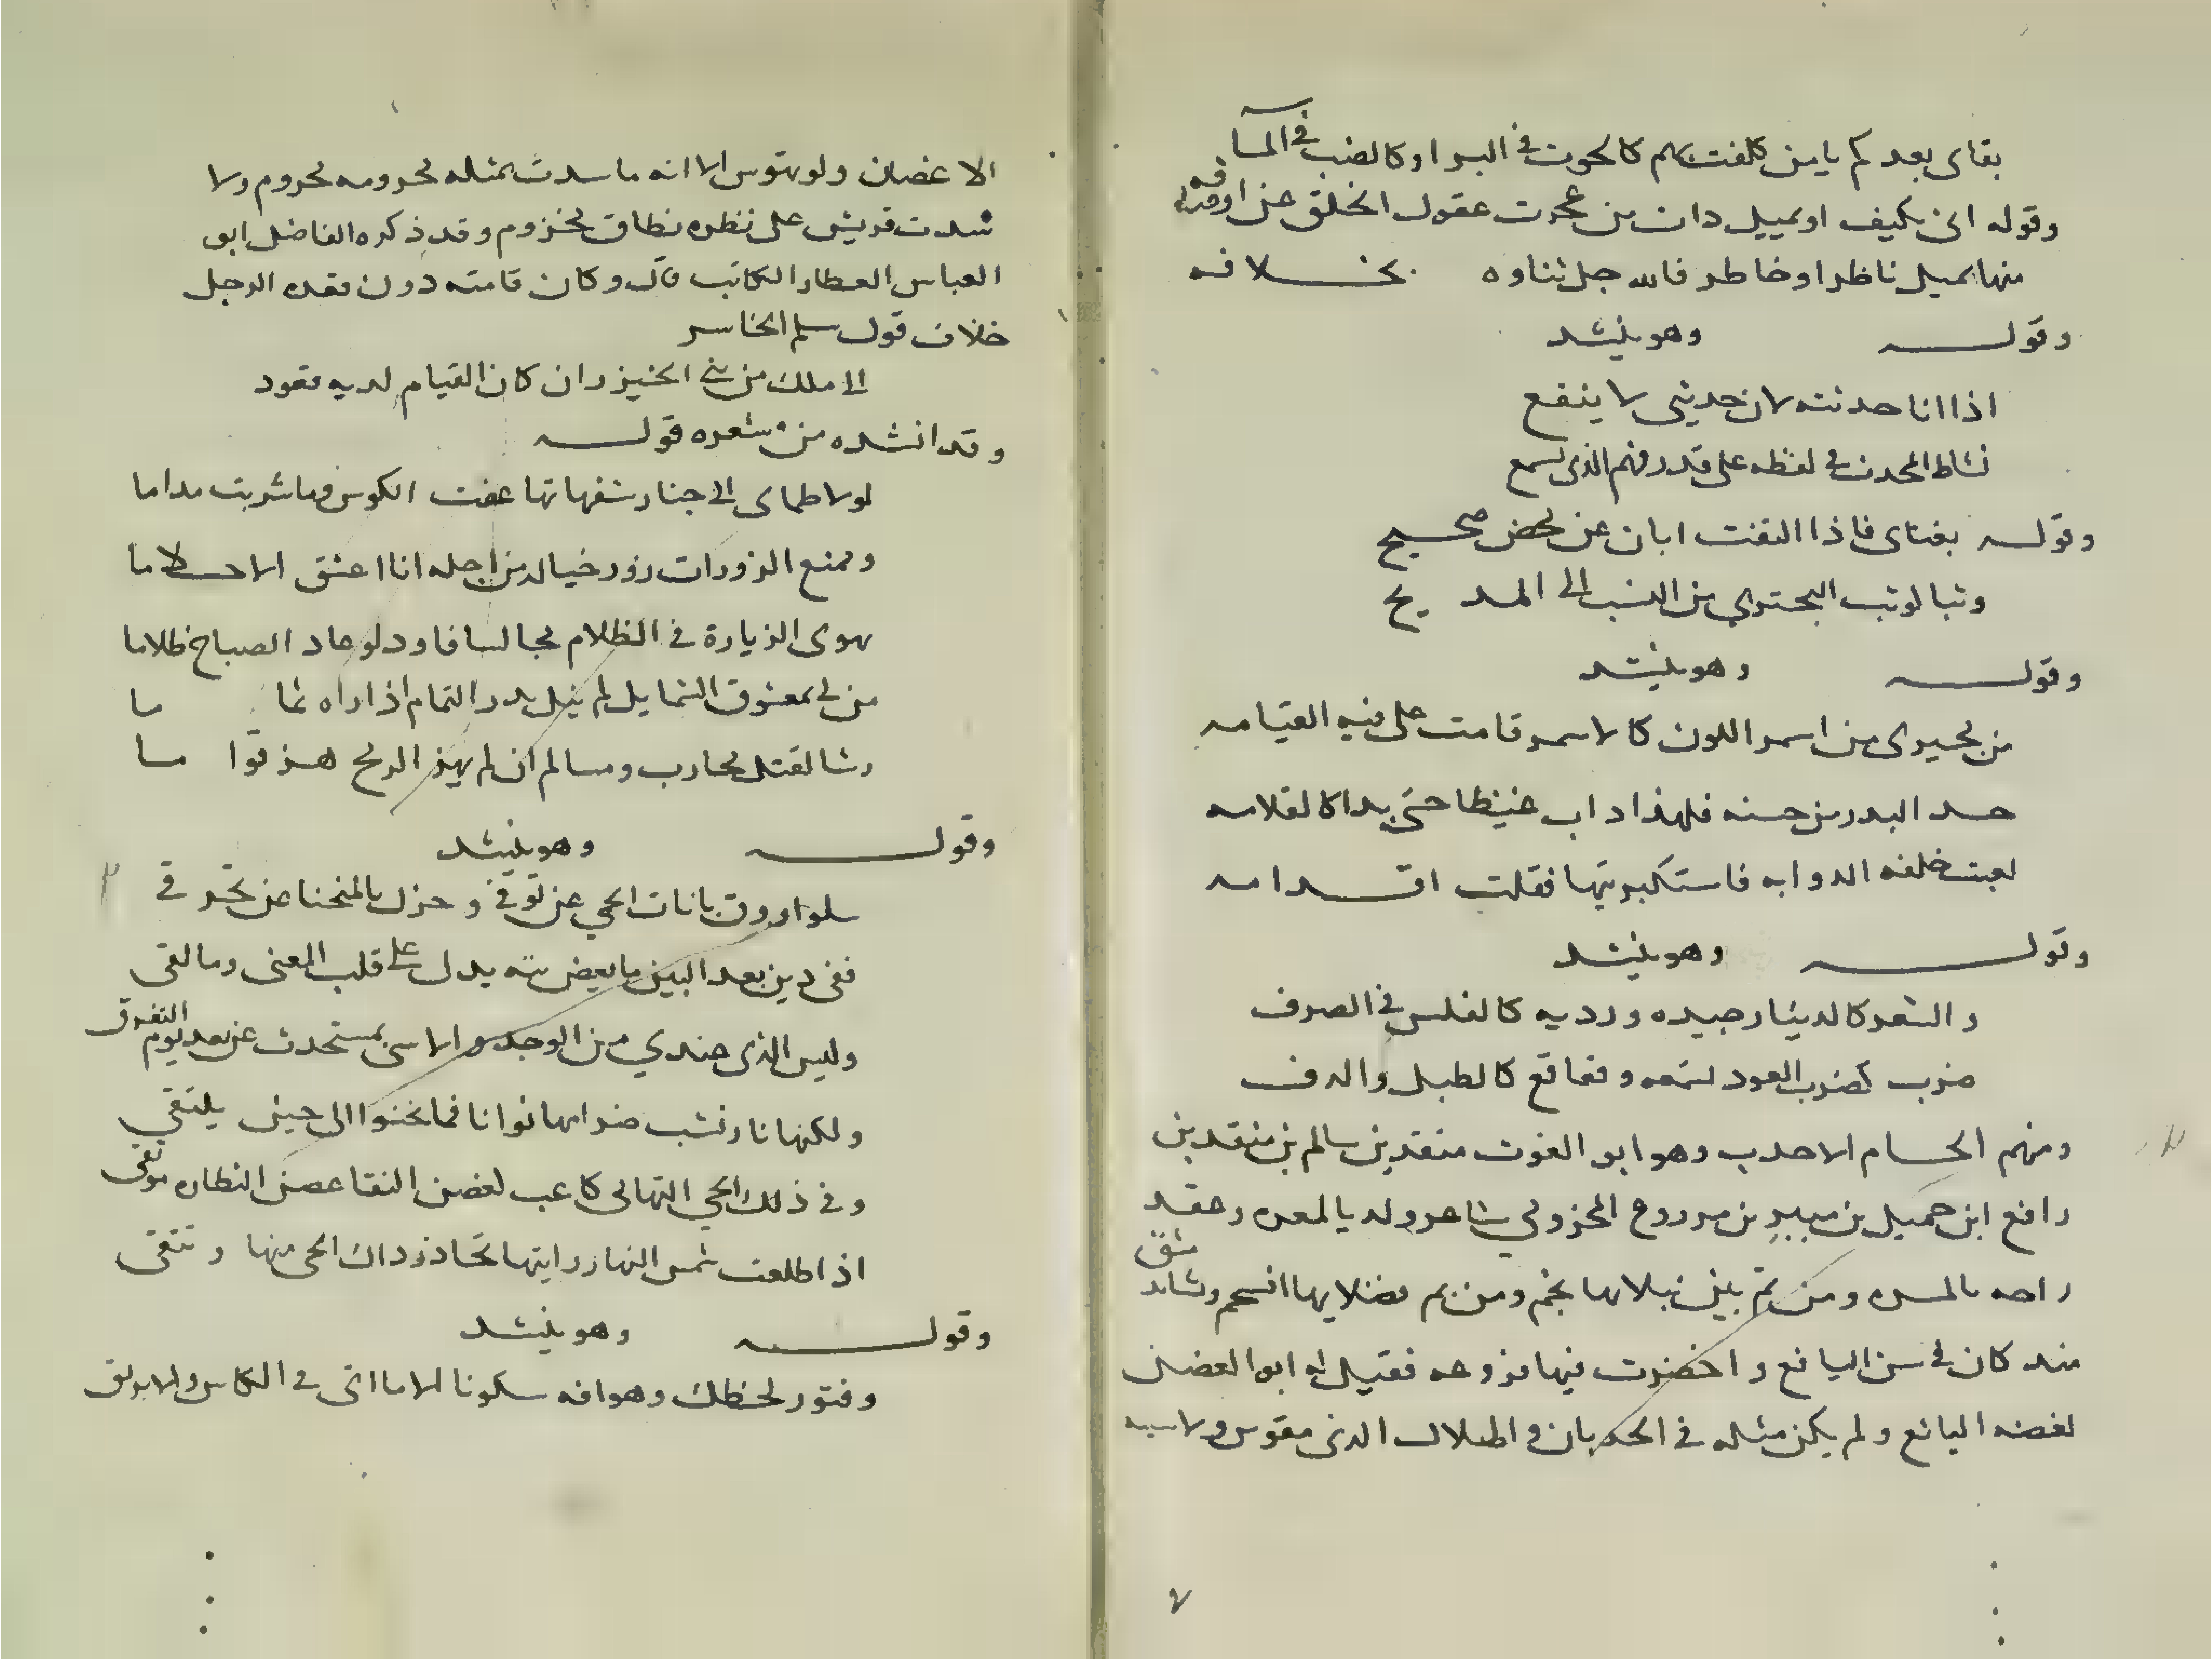 بقاى بعدكم يا من كلفت بهم كالحوت في البر او كالضب في المآ
وقوله انى بكيف او بميل دان من عجزت عقول الخلق عن اوصافه
منها بميل ناظر او خاطر فالله جل ثناوه بخلافه
وقوله وهو ينشد
اذا انا حدثته لان حديثى لا ينفع
نشاط المحدث في لفظه على قدر فهم الذى يسمع
وقوله بفتاى فاذا التفت ابان عن محض صحيح
وثبا لوثب البحتري من النسب الى المديح
وقوله وهو ينشد
من مجيرى من اسمر اللون كالاسمر قامت على فيه القيامه
حسد البدر من حسنه فلهذا داب غيظا حتى بدا كالقلامه
لعبت خلفه الدوابه فاستكبرتها فقلت اقدامه
وقوله وهو ينشد
والشعر كالدينار جيده ورديه كالفلس في الصرف
ضرب كضرب العود نسمعه وقعاقع كالطبل والدف
ومنهم الحسام الاحدب وهو ابو الغوث منقذ بن سالم بن منقذ بن
رافع ابن جميل بن منير بن مرروح المخزومي شاعر ولد بالمعره وعقد
راحه بالمسره ومن ثم بين نبلايها نجم ومن ثم فضلايها انسجم ونشابد مشق
منذ كان في سن اليافع واخضرت فيها فروعه فقيل له ابو الغضن
لغضنه اليانع ولم يكن مثله في الحدبان والهلال الذى مقوس ولاسيه
الاغضان ولو يتوس الا انه ما سدت بمثله محرومه محروم ولا
شدت قريش على نظره نطاق مخزوم وقد ذكره الفاضل ابو
العباس العطار الكاتب قال وكان قامته دون مقعد الرجل
خلاف قول سلم الخاسر
الى ملك من بني الخيزران كان القيام لديه قعود
وقد انشده من شعره قوله
لولا ظماى الى جنا رشفهاتها عفت الكوس فما شربت مداما
وممنع الزورات زور خياله من اجله انا اعشق الاحلاما
يهوى الزيارة في الظلام مجالسا فاود لو عاد الصباح ظلاما
من لى بمعشوق الشمايل لم ينل بدر التمام اذا راه تماما
رشا لقتلى محارب ومسالم ان لم يهز الرمح هز قواما
وقوله وهو ينشد
سلوا ورق بانات الحمي عن توقفى وحزل بالمنحنا عن تحرقى
ففى دين بعد البين ما بعض بثه يدل على قلب المعنى وما لقى
وليس الذى عندي من الوجد والاسى بمستحدث عن بعد يوم التفرق
ولكنها نار نشب ضرامها نوانا فما نخنوا الى حين يلتقي
وفي ذلك الحي التهامى كاعب لغضن النقا عصن النطاره مونقى
اذا طلعت شمس النهار رايتها تحاذر داك الحى منها وتتقى
وقوله وهو ينشد
وفتور لحظك وهوافه سكونا الا ما اتى في الكاس والابولق
٧